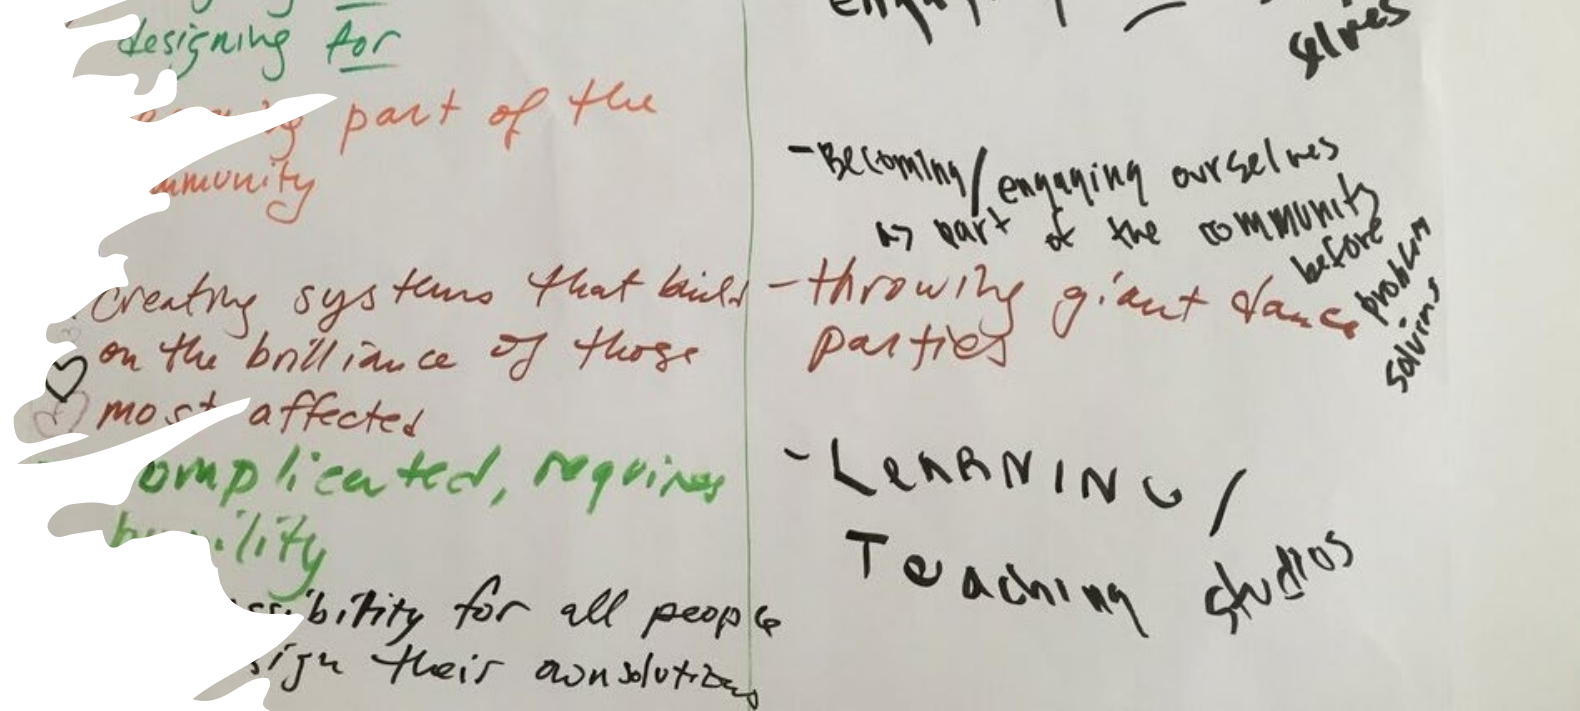 designing for
part of the
creating systems that build
on the brilliance of those
most affected
omplicated, requires
for all people
their own solutions
selves
- Becoming/engaging ourselves
as part of the community
before
problem
solving
- throwing giant dance
parties
- LeARNING/
Teaching studios